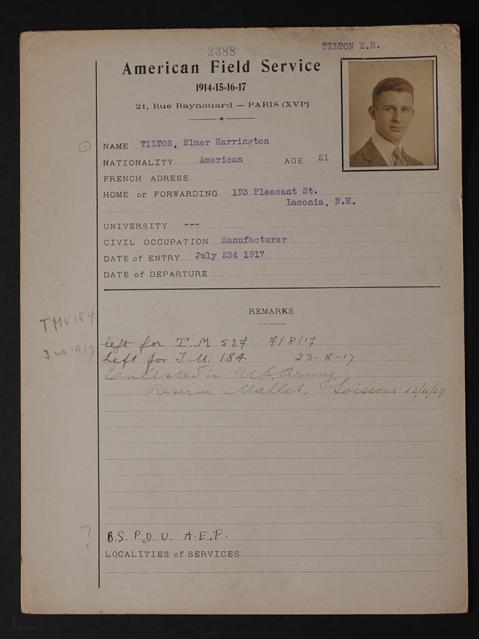 2388
TILTON E.H.
American Field Service
1914-15-16-17
21, Rue Raynouard — PARIS (XVIe)
NAME TILTON, Elmer Harrington
NATIONALITY American AGE 21
FRENCH ADRESS
HOME or FORWARDING 193 Pleasant St.
Laconia, N.H.
UNIVERSITY ---
CIVIL OCCUPATION Manufacturer
DATE of ENTRY July 23d 1917
DATE of DEPARTURE
REMARKS
TMU 184
left for T M 537 7/8/17
Left for T.U. 184 23-8-17
Enlisted in U.S. Army
Reserve Mallet, Soissons 13/11/17
?
B.S. P.D. U. A.E.F.
LOCALITIES of SERVICES